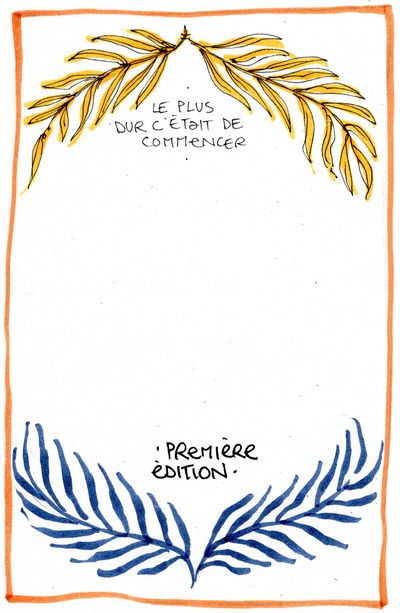 LE PLUS
DUR C'ÉTAIT DE
COMMENCER
.PREMIÈRE
ÉDITION.